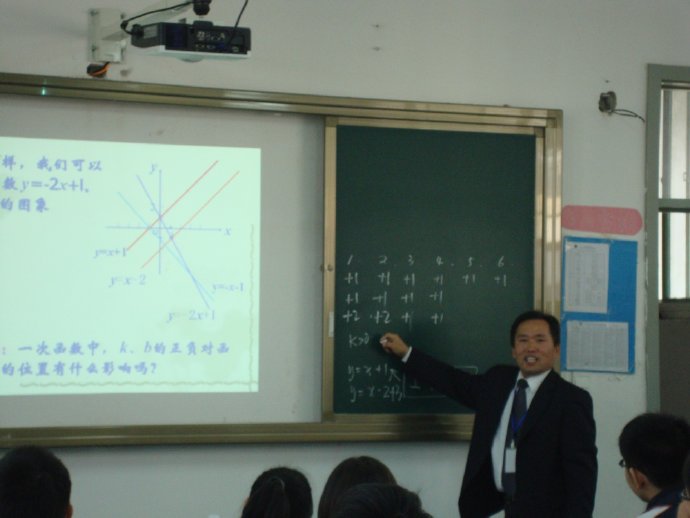 样，我们可以
数y=-2x+1、
的图象
y
x
y=x+1
y=x-2
y=-x-1
y=-2x+1
：一次函数中，k、b的正负对函
的位置有什么影响吗？
1 2 3 4. 5. 6.
+1 +1 +1 +1 +1 +1
+1 +1 +1 +1
+2 +2 +1 +1
k>0
y=x+1
y=x-2